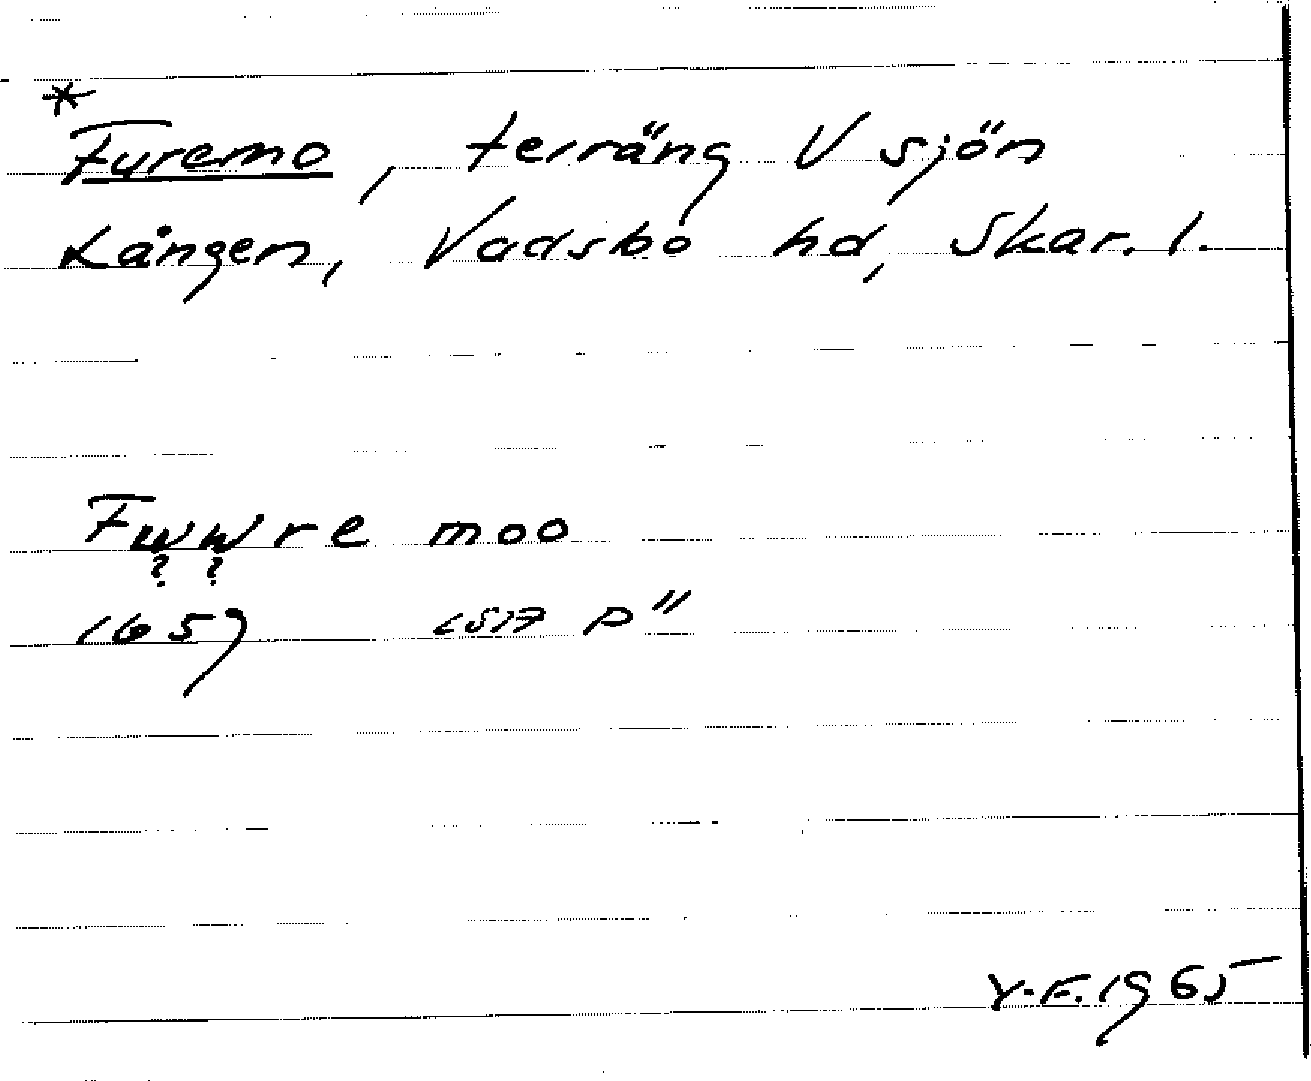 *
Furemo, terräng V sjön
Lången, Vadsbo hd, Skar. l.
Fwwre moo
? ?
1657 p"
Y.F. 1965